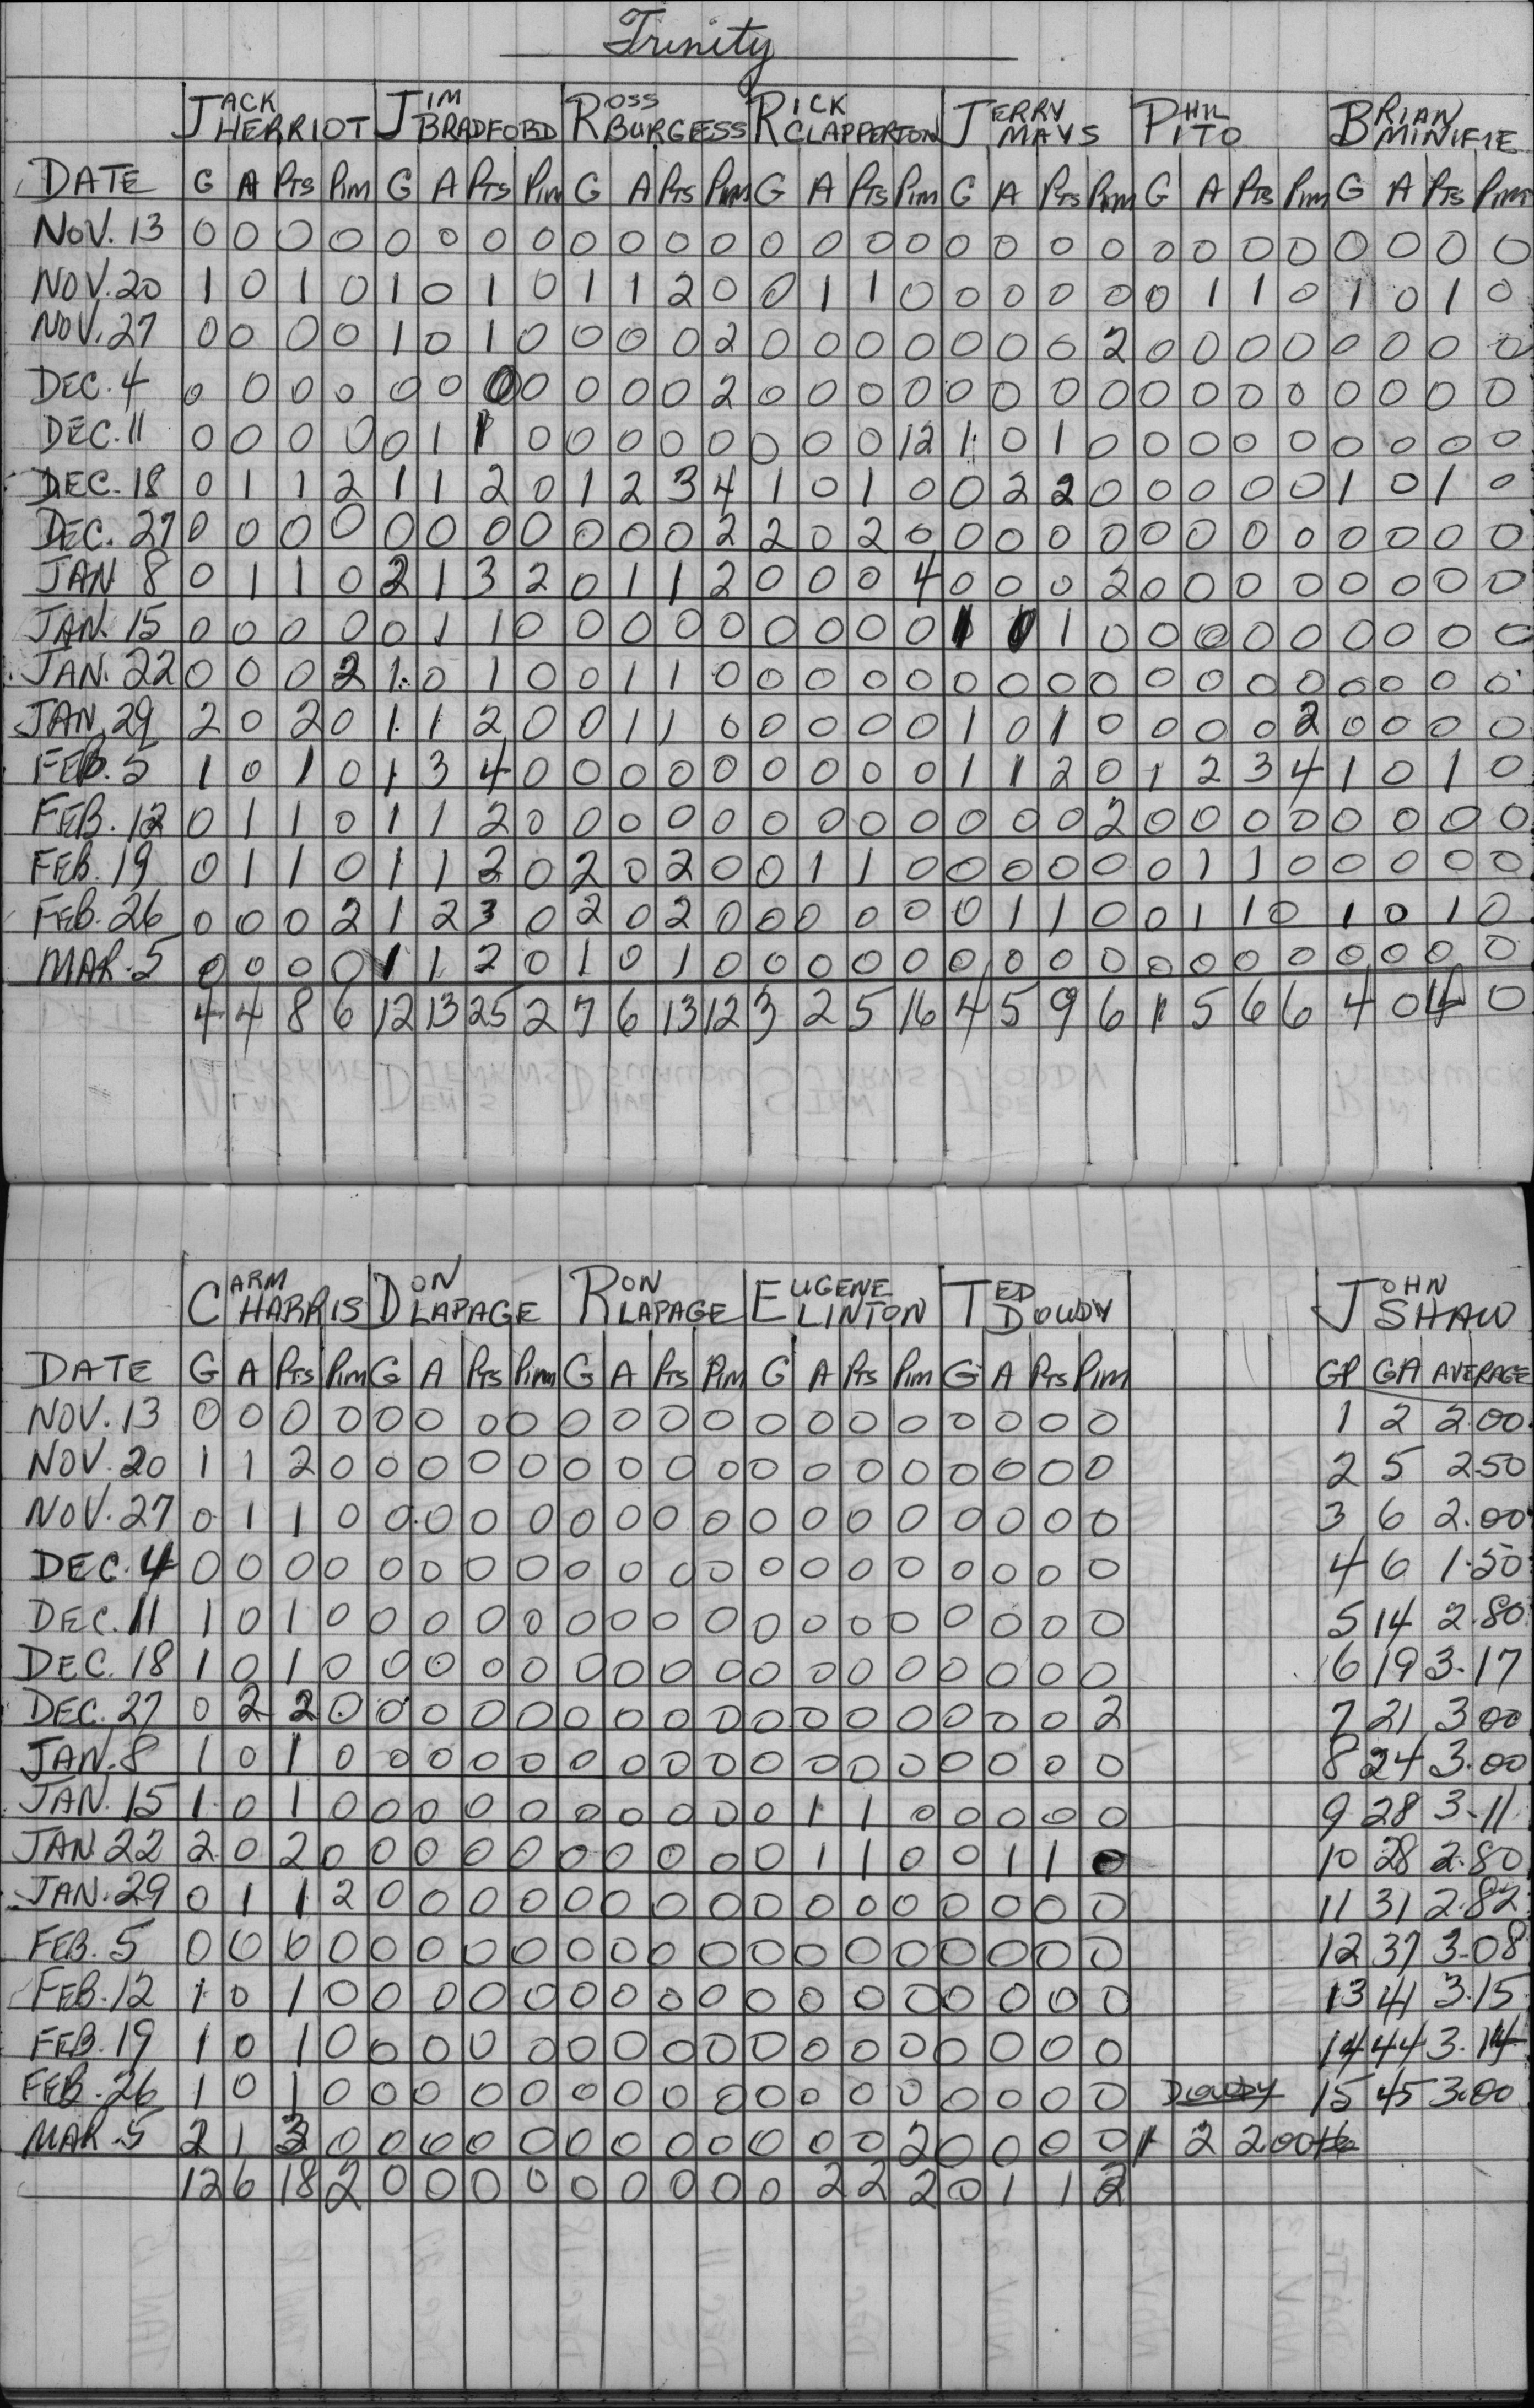 Trinity
JACK HERRIOT JIM BRADFORD ROSS BURGESS RICK CLAPPERTON JERRY MAYS PHIL PITO BRIAN MINIFIE
DATE G A PTS PIM G A PTS PIM G A PTS PIM G A PTS PIM G A PTS PIM G A PTS PIM G A PTS PIM
NOV. 13 0 0 0 0 0 0 0 0 0 0 0 0 0 0 0 0 0 0 0 0 0 0 0 0 0 0 0 0
NOV. 20 1 0 1 0 1 0 1 0 1 1 2 0 0 1 1 0 0 0 0 0 0 1 1 0 1 0 1 0
NOV. 27 0 0 0 0 1 0 1 0 0 0 0 2 0 0 0 0 0 0 0 2 0 0 0 0 0 0 0 0
DEC. 4 0 0 0 0 0 0 0 0 0 0 0 2 0 0 0 0 0 0 0 0 0 0 0 0 0 0 0 0
DEC. 11 0 0 0 0 0 1 1 0 0 0 0 0 0 0 0 12 1 0 1 0 0 0 0 0 0 0 0 0
DEC. 18 0 1 1 2 1 1 2 0 1 2 3 4 1 0 1 0 0 2 2 0 0 0 0 0 1 0 1 0
DEC. 27 0 0 0 0 0 0 0 0 0 0 0 2 2 0 2 0 0 0 0 0 0 0 0 0 0 0 0 0
JAN 8 0 1 1 0 2 1 3 2 0 1 1 2 0 0 0 4 0 0 0 2 0 0 0 0 0 0 0 0
JAN. 15 0 0 0 0 0 1 1 0 0 0 0 0 0 0 0 0 1 1 0 0 0 0 0 0 0 0 0
JAN. 22 0 0 0 2 1 0 1 0 0 1 1 0 0 0 0 0 0 0 0 0 0 0 0 0 0 0 0 0
JAN. 29 2 0 2 0 1 1 2 0 0 1 1 0 0 0 0 0 1 0 1 0 0 0 0 2 0 0 0 0
FEB. 5 1 0 1 0 1 3 4 0 0 0 0 0 0 0 0 0 1 1 2 0 1 2 3 4 1 0 1 0
FEB. 12 0 1 1 0 1 1 2 0 0 0 0 0 0 0 0 0 0 0 0 2 0 0 0 0 0 0 0 0
FEB. 19 0 1 1 0 1 1 2 0 2 0 2 0 0 1 1 0 0 0 0 0 0 1 1 0 0 0 0 0
FEB. 26 0 0 0 2 1 2 3 0 2 0 2 0 0 0 0 0 0 1 1 0 0 1 1 0 1 0 1 0
MAR. 5 0 0 0 0 1 1 2 0 1 0 1 0 0 0 0 0 0 0 0 0 0 0 0 0 0 0 0 0
4 4 8 6 12 13 25 2 7 6 13 12 3 2 5 16 4 5 9 6 1 5 6 6 4 0 4 0
CARM HARRIS DON LAPAGE RON LAPAGE EUGENE LINTON TED DOWDY JOHN SHAW
DATE G A PTS PIM G A PTS PIM G A PTS PIM G A PTS PIM G A PTS PIM GP GA AVERAGE
NOV. 13 0 0 0 0 0 0 0 0 0 0 0 0 0 0 0 0 0 0 0 0 1 2 2.00
NOV. 20 1 1 2 0 0 0 0 0 0 0 0 0 0 0 0 0 0 0 0 0 2 5 2.50
NOV. 27 0 1 1 0 0 0 0 0 0 0 0 0 0 0 0 0 0 0 0 0 3 6 2.00
DEC. 4 0 0 0 0 0 0 0 0 0 0 0 0 0 0 0 0 0 0 0 0 4 6 1.50
DEC. 11 1 0 1 0 0 0 0 0 0 0 0 0 0 0 0 0 0 0 0 0 5 14 2.80
DEC. 18 1 0 1 0 0 0 0 0 0 0 0 0 0 0 0 0 0 0 0 0 6 19 3.17
DEC. 27 0 2 2 0 0 0 0 0 0 0 0 0 0 0 0 0 0 0 0 2 7 21 3.00
JAN. 8 1 0 1 0 0 0 0 0 0 0 0 0 0 0 0 0 0 0 0 0 8 24 3.00
JAN. 15 1 0 1 0 0 0 0 0 0 0 0 0 0 1 1 0 0 0 0 0 9 28 3.11
JAN 22 2 0 2 0 0 0 0 0 0 0 0 0 0 1 1 0 0 1 1 0 10 28 2.80
JAN. 29 0 1 1 2 0 0 0 0 0 0 0 0 0 0 0 0 0 0 0 0 11 31 2.82
FEB. 5 0 0 0 0 0 0 0 0 0 0 0 0 0 0 0 0 0 0 0 0 12 37 3.08
FEB. 12 1 0 1 0 0 0 0 0 0 0 0 0 0 0 0 0 0 0 0 0 13 41 3.15
FEB. 19 1 0 1 0 0 0 0 0 0 0 0 0 0 0 0 0 0 0 0 0 14 44 3.14
FEB. 26 1 0 1 0 0 0 0 0 0 0 0 0 0 0 0 0 0 0 0 0 DOWDY 15 45 3.00
MAR. 5 2 1 3 0 0 0 0 0 0 0 0 0 0 0 0 2 0 0 0 0 1 2 2.00
12 6 18 2 0 0 0 0 0 0 0 0 0 2 2 2 0 1 1 2